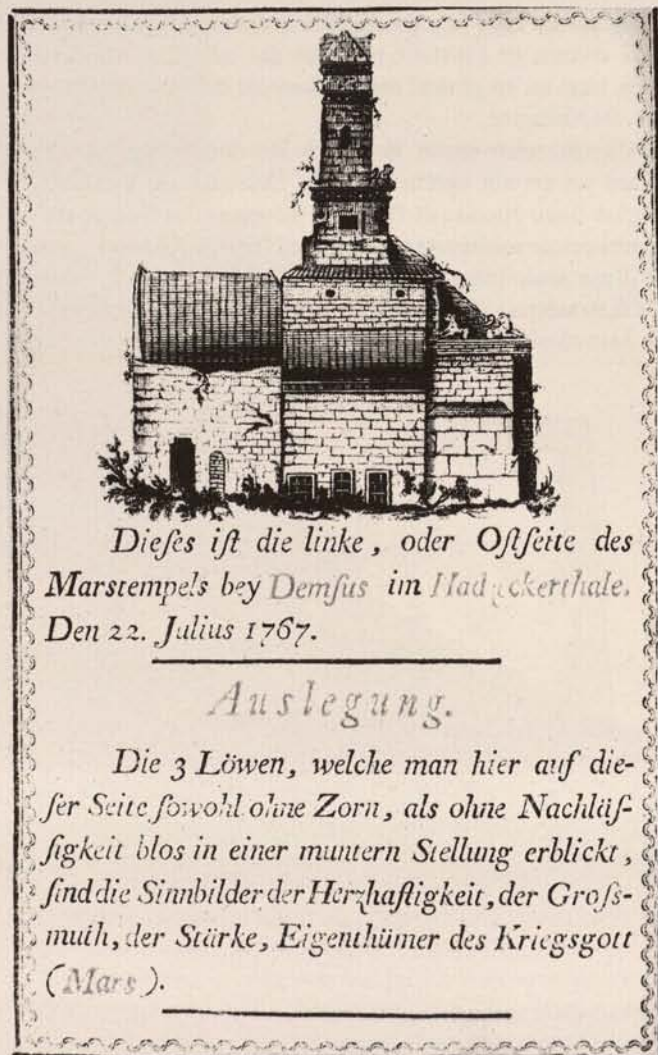 Dieſes iſt die linke, oder Oſtſeite des
Marstempels bey Demſus im Hadzeckerthale.
Den 22. Julius 1767.
Auslegung.
Die 3 Löwen, welche man hier auf die-
ſer Seite ſowohl ohne Zorn, als ohne Nachläſ-
ſigkeit blos in einer muntern Stellung erblickt,
ſind die Sinnbilder der Herzhaftigkeit, der Groſs-
muth, der Stärke, Eigenthümer des Kriegsgott
(Mars).